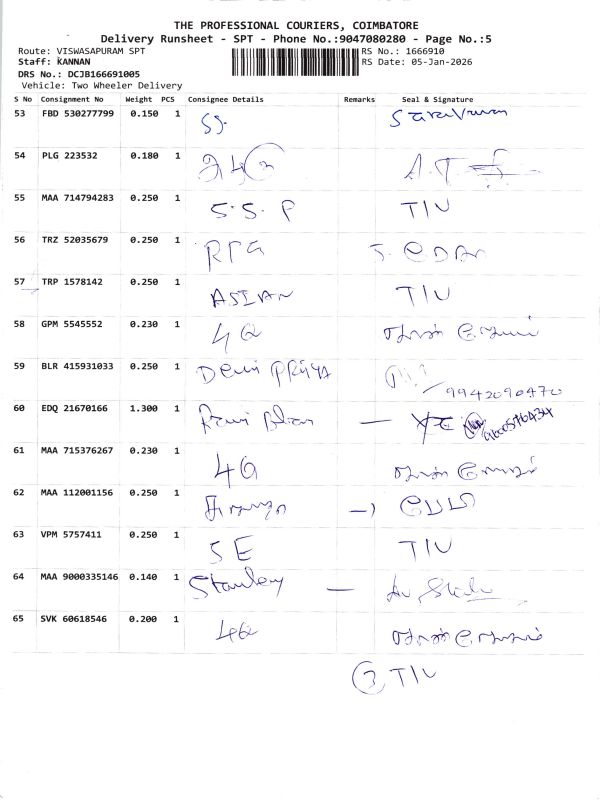 THE PROFESSIONAL COURIERS, COIMBATORE
Delivery Runsheet - SPT - Phone No.:9047080280 - Page No.:5
Route: VISWASAPURAM SPT
RS No.: 1666910
Staff: KANNAN
RS Date: 05-Jan-2026
DRS No.: DCJB166691005
Vehicle: Two Wheeler Delivery
S No Consignment No Weight PCS Consignee Details Remarks Seal & Signature
53 FBD 530277799 0.150 1 SS. Saravanan
54 PLG 223532 0.180 1
55 MAA 714794283 0.250 1 S.S.P TIU
56 TRZ 52035679 0.250 1 RPG
57 TRP 1578142 0.250 1 ASIAN TIU
58 GPM 5545552 0.230 1 4G
59 BLR 415931033 0.250 1 Devi PRIYA 9942090470
60 EDQ 21670166 1.300 1
61 MAA 715376267 0.230 1 4G
62 MAA 112001156 0.250 1
63 VPM 5757411 0.250 1 SE TIU
64 MAA 9000335146 0.140 1 Stanley —
65 SVK 60618546 0.200 1 4G
3 TIU